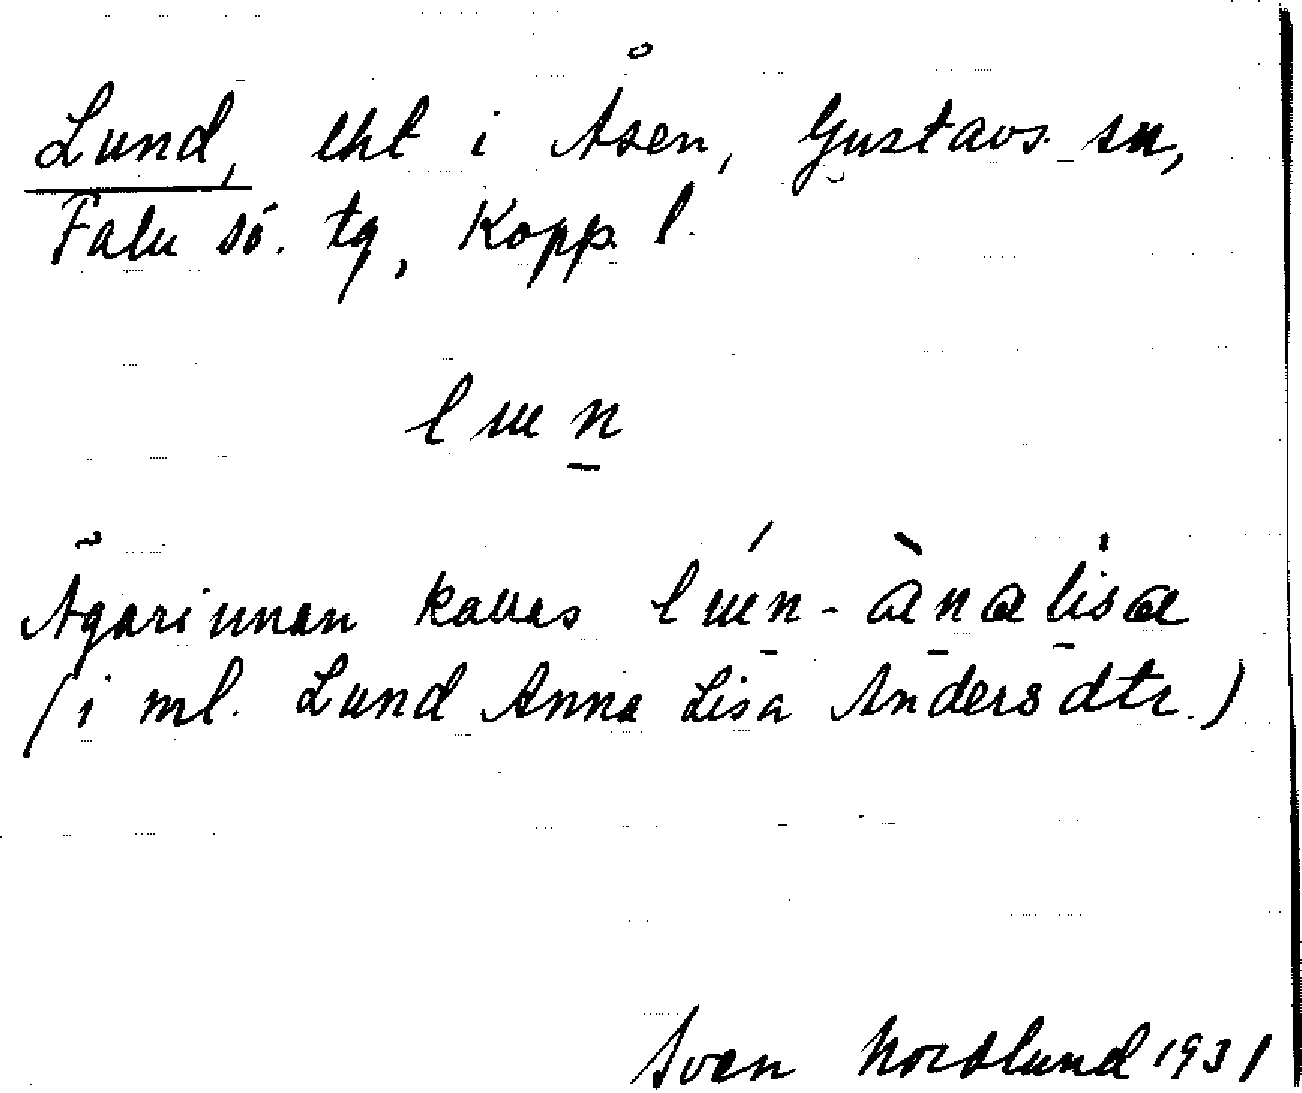 Lund, lht i Åsen, Gustavs sn,
Falu sö. tg, Kopp. l.
lɯn̲
Ägarinnan kallas lɯ́n̲-àn̲alisa
(i ml. Lund Anna Lisa Andersdtr.)
Sven Nordlund 1931